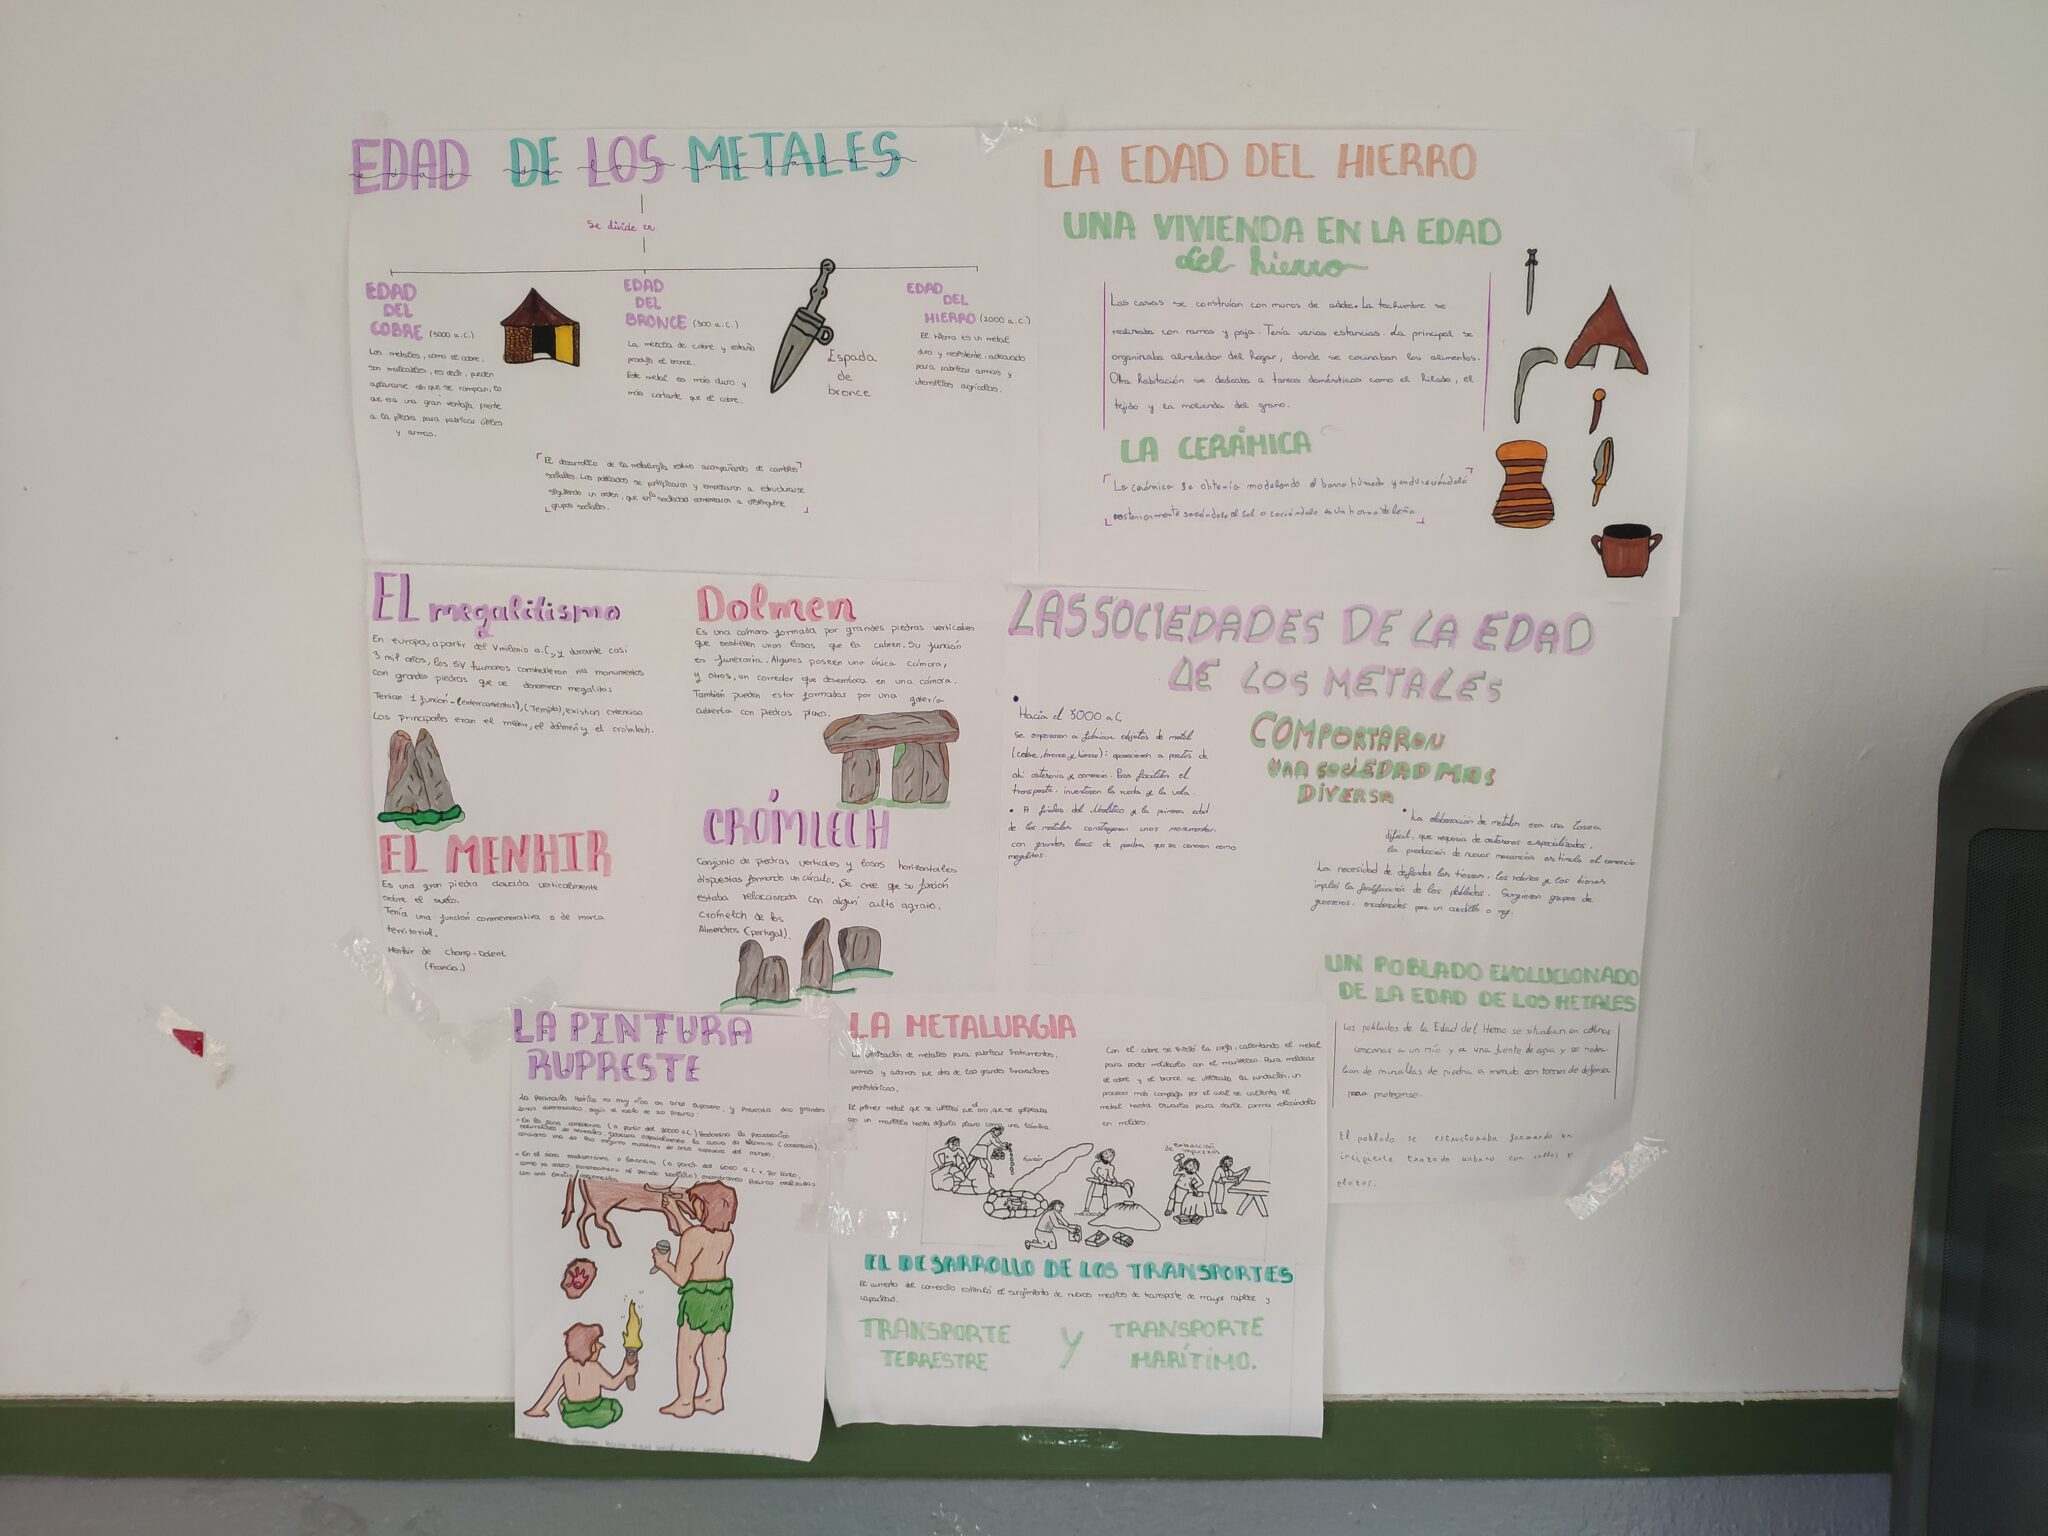 EDAD DE LOS METALES
Se divide en
EDAD
DEL
COBRE (5000 a.C.)
Los metales, como el cobre,
son maleables, es decir, pueden
aplanarse sin que se rompan, lo
que era una gran ventaja frente
a la piedra para fabricar útiles
y armas.
EDAD
DEL
BRONCE (300 a.C.)
La mezcla de cobre y estaño
produjo el bronce.
Este metal es más duro y
más cortante que el cobre.
Espada
de
bronce
EDAD
DEL
HIERRO (1000 a.C.)
El hierro es un metal
duro y resistente, adecuado
para fabricar armas y
utensilios agrícolas.
El desarrollo de la metalurgia estuvo acompañando de cambios
sociales. Los poblados se fortificaron y empezaron a estructurarse
siguiendo un orden, que en la sociedad comenzaron a distinguirse
grupos sociales.
LA EDAD DEL HIERRO
UNA VIVIENDA EN LA EDAD
del hierro
Las casas se construían con muros de adobe. La techumbre se
realizaba con ramas y paja. Tenía varias estancias. La principal se
organizaba alrededor del hogar, donde se cocinaban los alimentos.
Otra habitación se dedicaba a tareas domésticas como el hilado, el
tejido y la molienda del grano.
LA CERÁMICA
La cerámica se obtenía modelando el barro húmedo y endureciéndolo
posteriormente secándolo al sol o cociéndolo en un horno de leña
EL megalitismo
En europa, a partir del V milenio a.C, y durante casi
3 mil años, los SV humanos construyeron monumentos
con grandes piedras que se denominan megalitos
Tenían 1 función-(enterramientos), (Templo), existían creencias
Los principales eran el menir, el dolmen y el crómlech.
EL MENHIR
Es una gran piedra clavada verticalmente
sobre el suelo.
Tenía una función conmemorativa o de marca
territorial.
Menhir de Champ-Dolent
(Francia.)
Dolmen
Es una cámara formada por grandes piedras verticales
que sostienen unas losas que la cubren. Su función
es funeraria. Algunos poseen una única cámara,
y otros, un corredor que desemboca en una cámara.
También pueden estar formadas por una galería
cubierta con piedras planas.
CRÓMLECH
Conjunto de piedras verticales y losas horizontales
dispuestas formando un círculo. Se cree que su función
estaba relaccionada con algún culto agrario.
Crómlech de los
Almendros (portugal).
LAS SOCIEDADES DE LA EDAD
DE LOS METALES
Hacia el 5000 a.C,
se empezaron a fabricar objetos de metal
(cobre, bronce y hierro); aparecieron a partir de
ahí artesanía y comercio. Para facilitar el
transporte, inventaron la rueda y la vela.
• A finales del Neolítico y la primera edad
de los metales construyeron unos monumentos
con grandes losas de piedra que se conocen como
megalitos.
COMPORTARON
UNA SOCIEDAD MAS
DIVERSA
• La elaboración de metales era una tarea
difícil, que requería de artesanos especializados,
la producción de nuevas mercancías estimuló el comercio.
La necesidad de defender las tierras, los rebaños y los bienes
implicó la fortificación de los poblados. Surgieron grupos de
guerreros, encabezados por un caudillo o rey.
UN POBLADO EVOLUCIONADO
DE LA EDAD DE LOS METALES
Los poblados de la Edad del Hierro se situaban en colinas
cercanas a un río y a una fuente de agua y se rodea
ban de murallas de piedra a menudo con torres de defensa
para protegerse.
El poblado se estructuraba formando un
incipiente trazado urbano con calles y
plazas.
LA PINTURA
RUPRESTE
La Península Ibérica es muy rica en arte rupestre, y presenta dos grandes
zonas diferenciadas, según el estilo de sus pinturas:
LA METALURGIA
La utilización de metales para fabricar instrumentos,
armas y adornos fue otra de las grandes innovaciones
prehistóricas.
El primer metal que se utilizó fue el oro, que se golpeaba
con un martillo hasta dejarlo plano como una lámina.
Con el cobre se inició la forja, calentando el metal
para poder moldearlo con el martilleo. Para moldear
el cobre y el bronce se utilizaba la fundición, un
proceso más complejo por el cual se calienta el
metal hasta fundirlo para darle forma colocándolo
en moldes.
fusión
extracción
de impurezas
EL DESARROLLO DE LOS TRANSPORTES
El aumento del comercio estimuló el surgimiento de nuevos medios de transporte de mayor rapidez y
capacidad.
TRANSPORTE
TERRESTRE
Y
TRANSPORTE
MARÍTIMO.